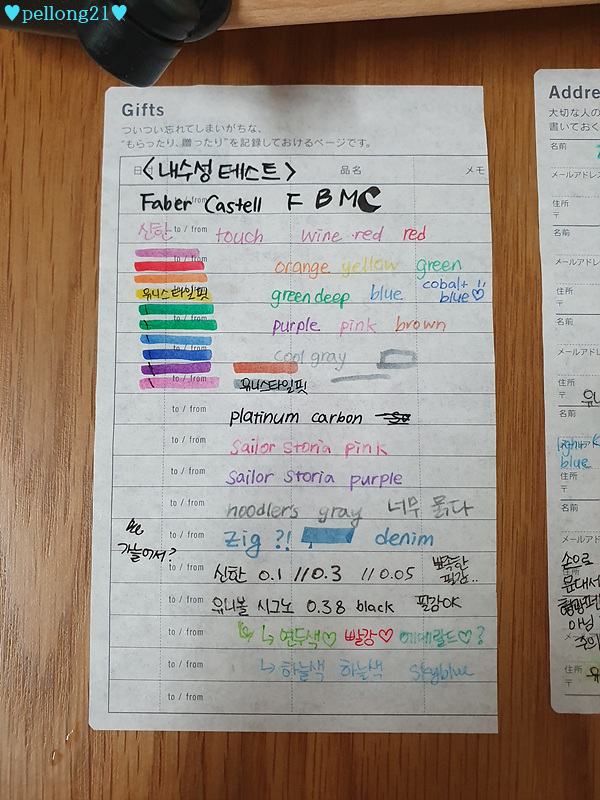 ♥pellong21♥
Gifts
ついつい忘れてしまいがちな、
"もらったり、贈ったり"を記録しておけるページです。
日 品名 メモ
<내수성 테스트>
from
Faber Castell F B M C
신한 to / from touch wine red red
to / from
orange yellow green
유니스타일핏 green deep blue cobalt blue♡
purple pink brown
to / from
cool gray
유니스타일핏
to / from platinum carbon
to / from Sailor Storia pink
to / from Sailor Storia purple
to / from noodler's gray 너무 묽다
가늘어서?
to / from Zig ?! denim
to / from 신한 0.1 //0.3 //0.05 뾰족한 필감..
to / from 유니볼 시그노 0.38 black 필감OK
to / from ↳연두색♡ 빨강♡ 에메랄드♡?
to / from ↳하늘색 하늘색 Skyblue
to / from
Addre
大切な人の
書いておく
名前
メールアドレス
住所
〒
名前
メールアドレス
住所
〒
名前
メールアドレス
住所
〒
名前
blue
住所
〒
名前
メールアド
손으로
문대서
형광펜
아님
주의
住所
〒